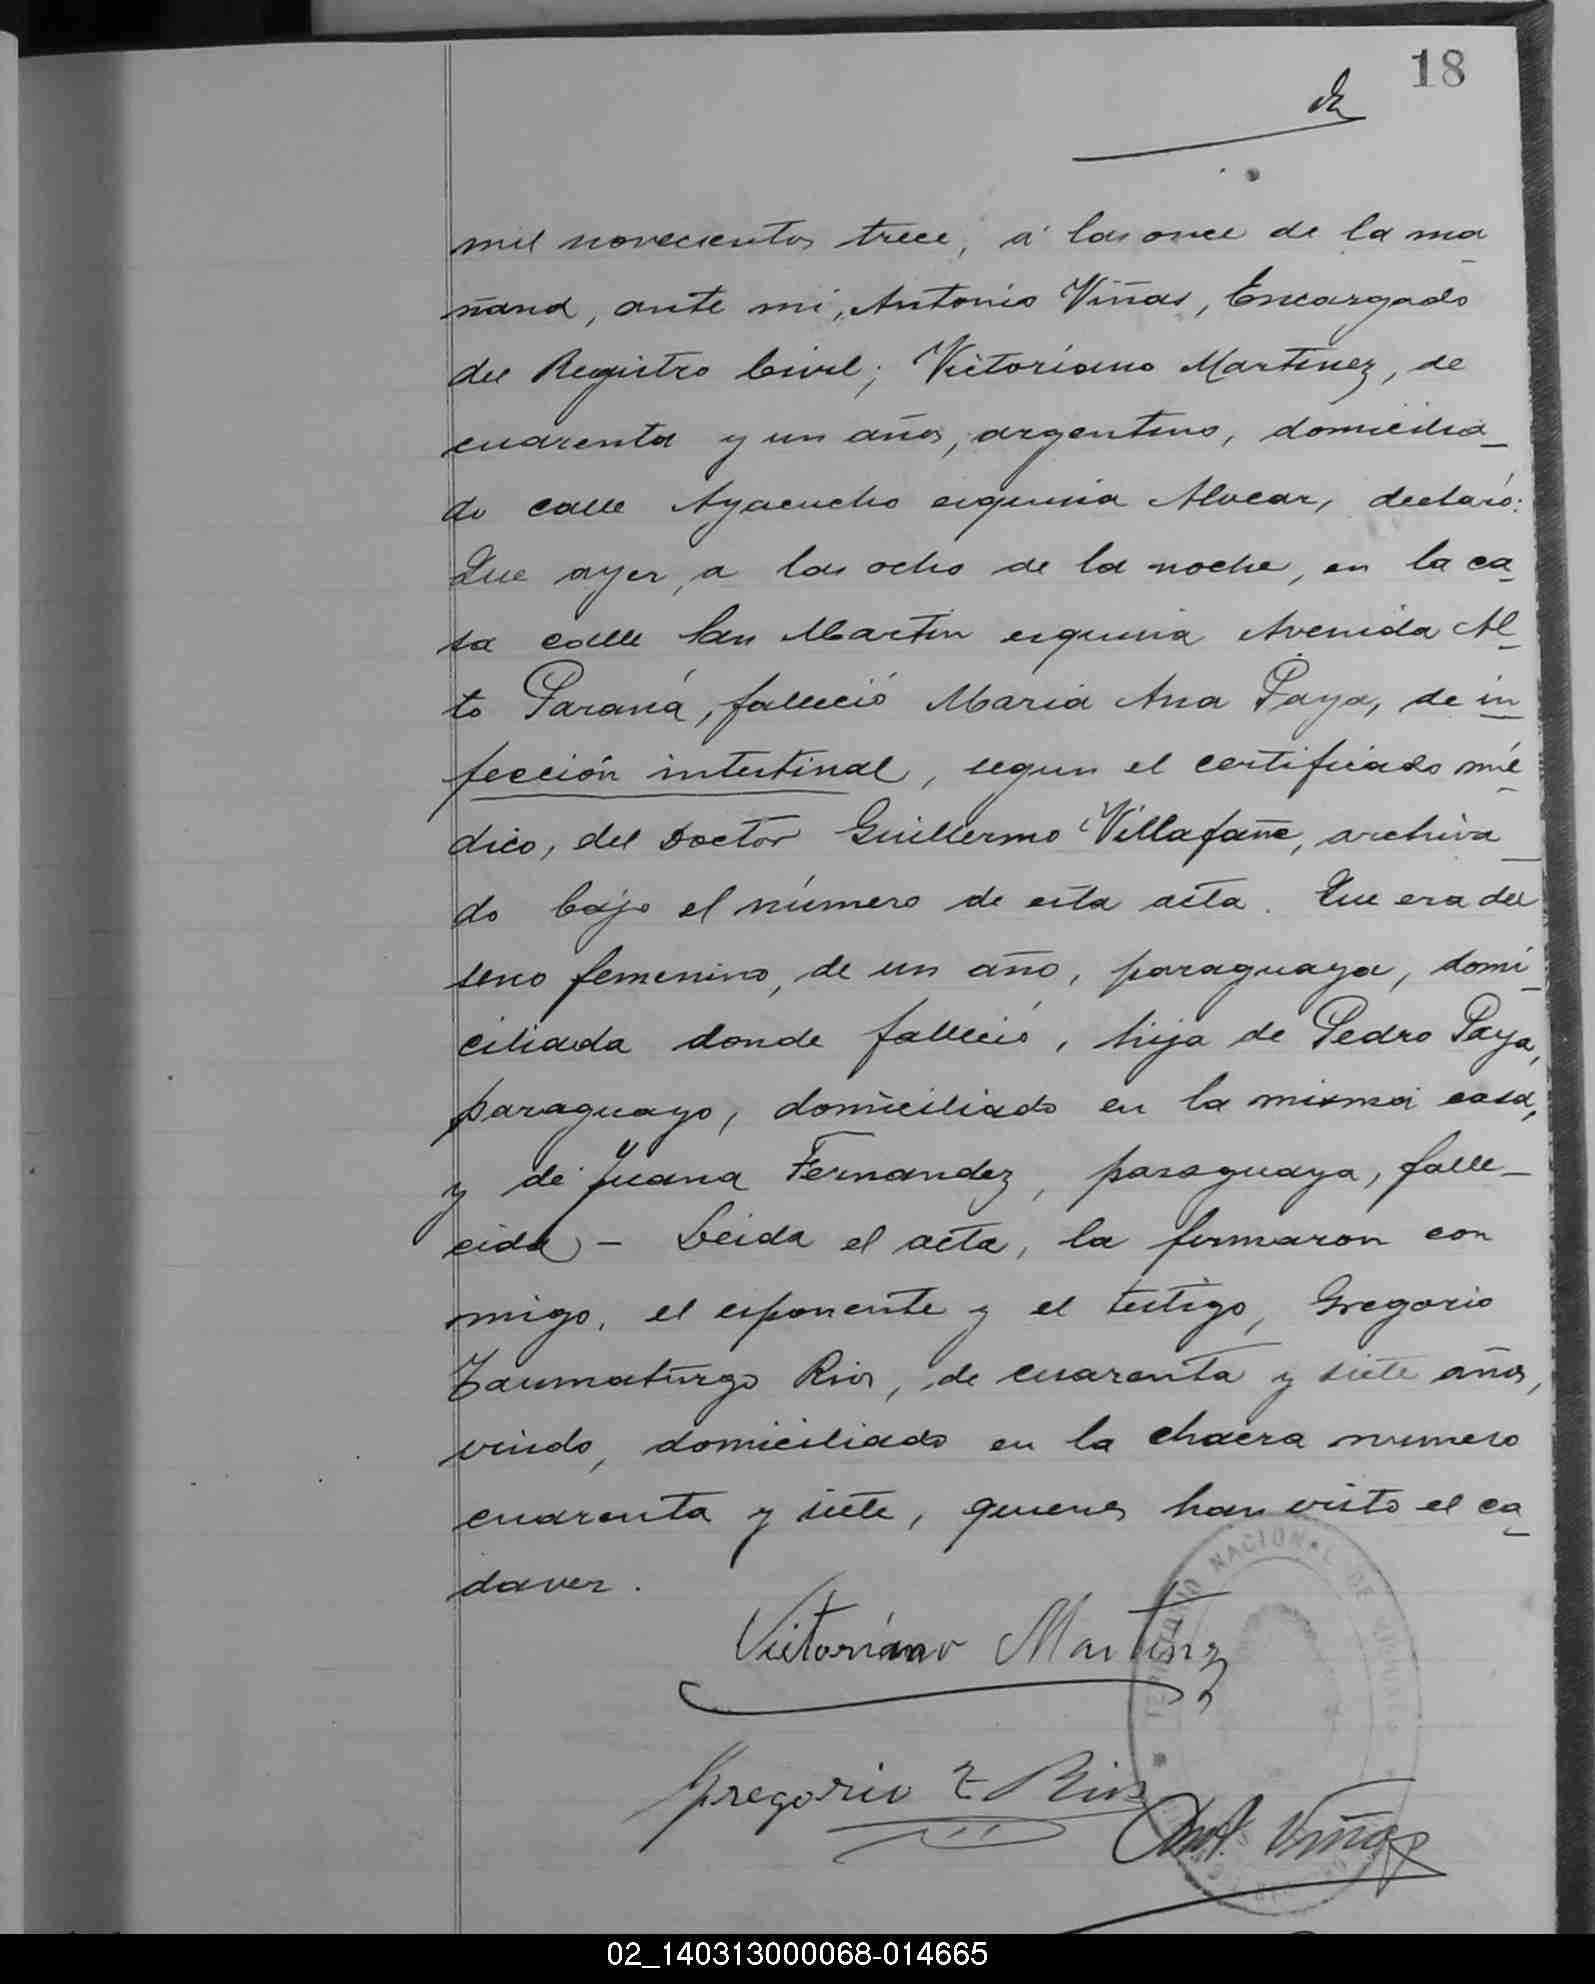 18
mil novecientos trece, á las once de la ma
ñana, ante mi, Antonio Viñas, Encargado
del Registro Civil; Victoriano Martinez, de
cuarenta y un años, argentino, domicilia_
do calle Ayacucho esquina Alvear, declaró:
Que ayer, a las ocho de la noche, en la ca_
sa calle San Martin esquina Avenida Al_
to Paraná, falleció Maria Ana Paya, de in_
fección intestinal, segun el certificado mé_
dico, del Doctor Guillermo Villafañe, archiva_
do bajo el número de esta acta. Que era del
sexo femenino, de un año, paraguaya, domi_
ciliada donde falleció, hija de Pedro Paya,
paraguayo, domiciliado en la misma casa,
y de Juana Fernandez, paraguaya, falle_
cida – Leida el acta, la firmaron con
migo, el esponente y el testigo, Gregorio
Taumaturgo Rios, de cuarenta y siete años,
viudo, domiciliado en la chacra numero
cuarenta y siete, quienes han visto el ca_
daver.
Victoriano Martinez
Gregorio T Rios
Ant. Viñas
TERRITORIO NACIONAL DE MISIONES
02_140313000068-014665